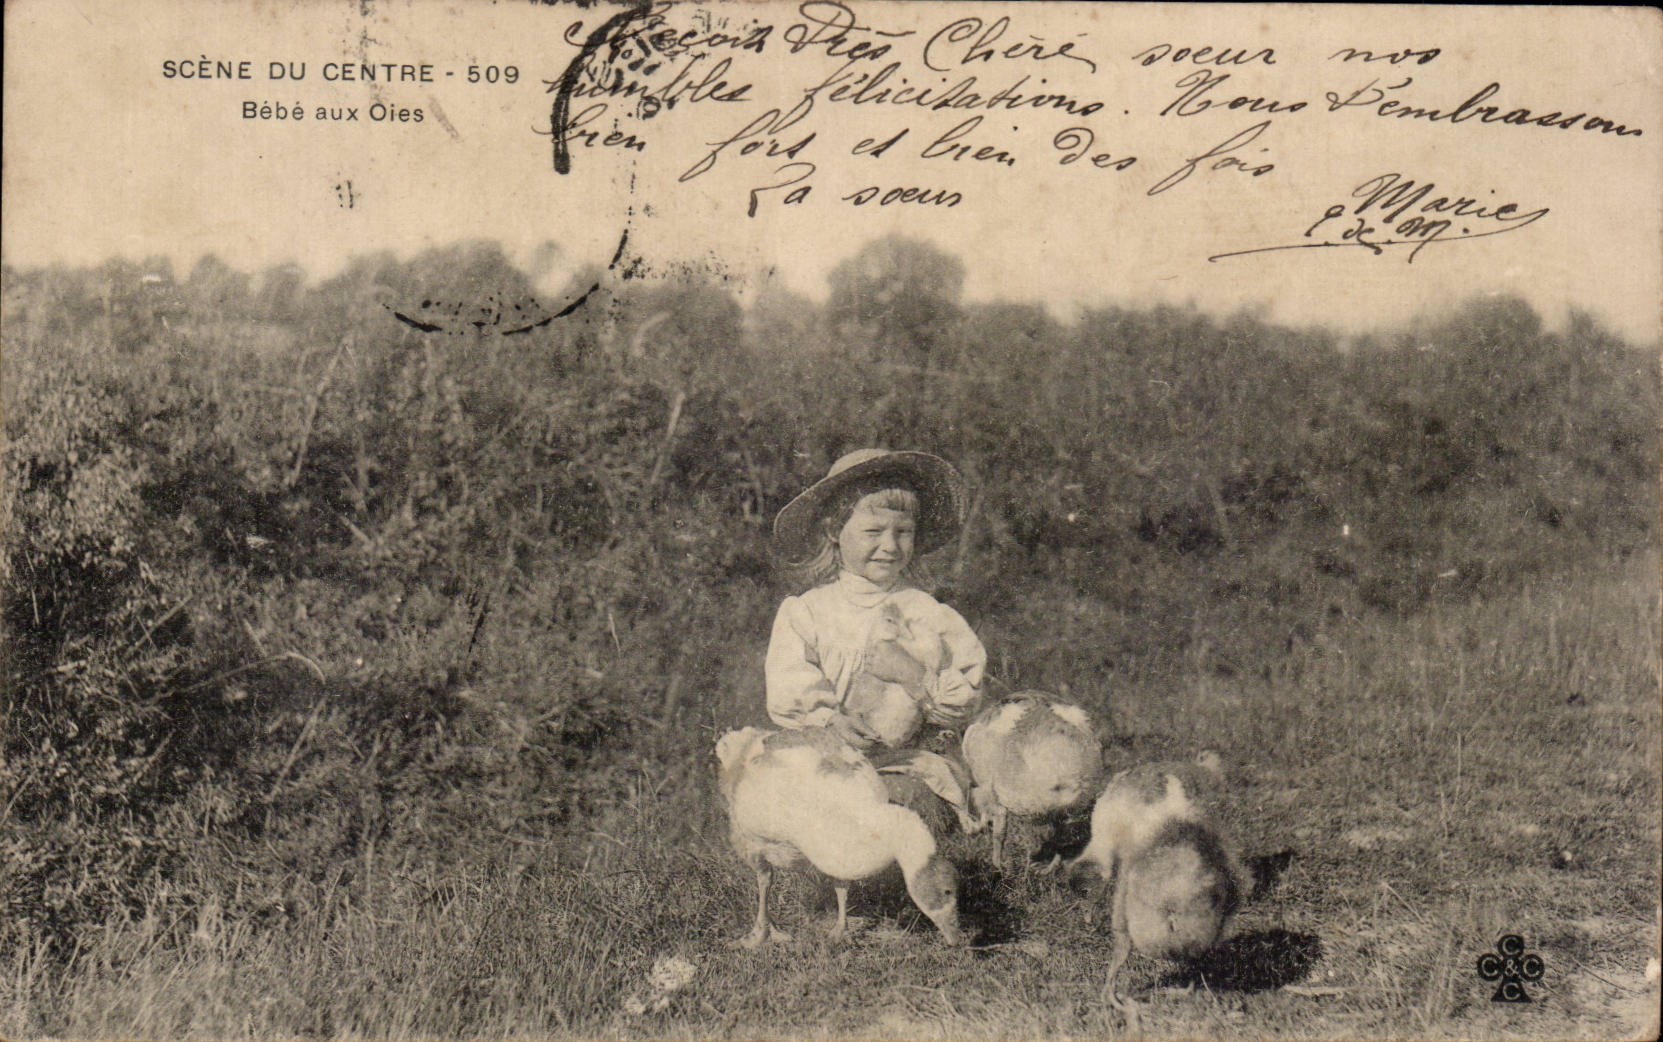 SCÈNE DU CENTRE - 509
Bébé aux Oies
Recois Très Chère soeur nos
humbles félicitations. Nous t'embrassons
bien fort et bien des fois
Ta soeur
Marie
E. de. M.
C
C & C
C